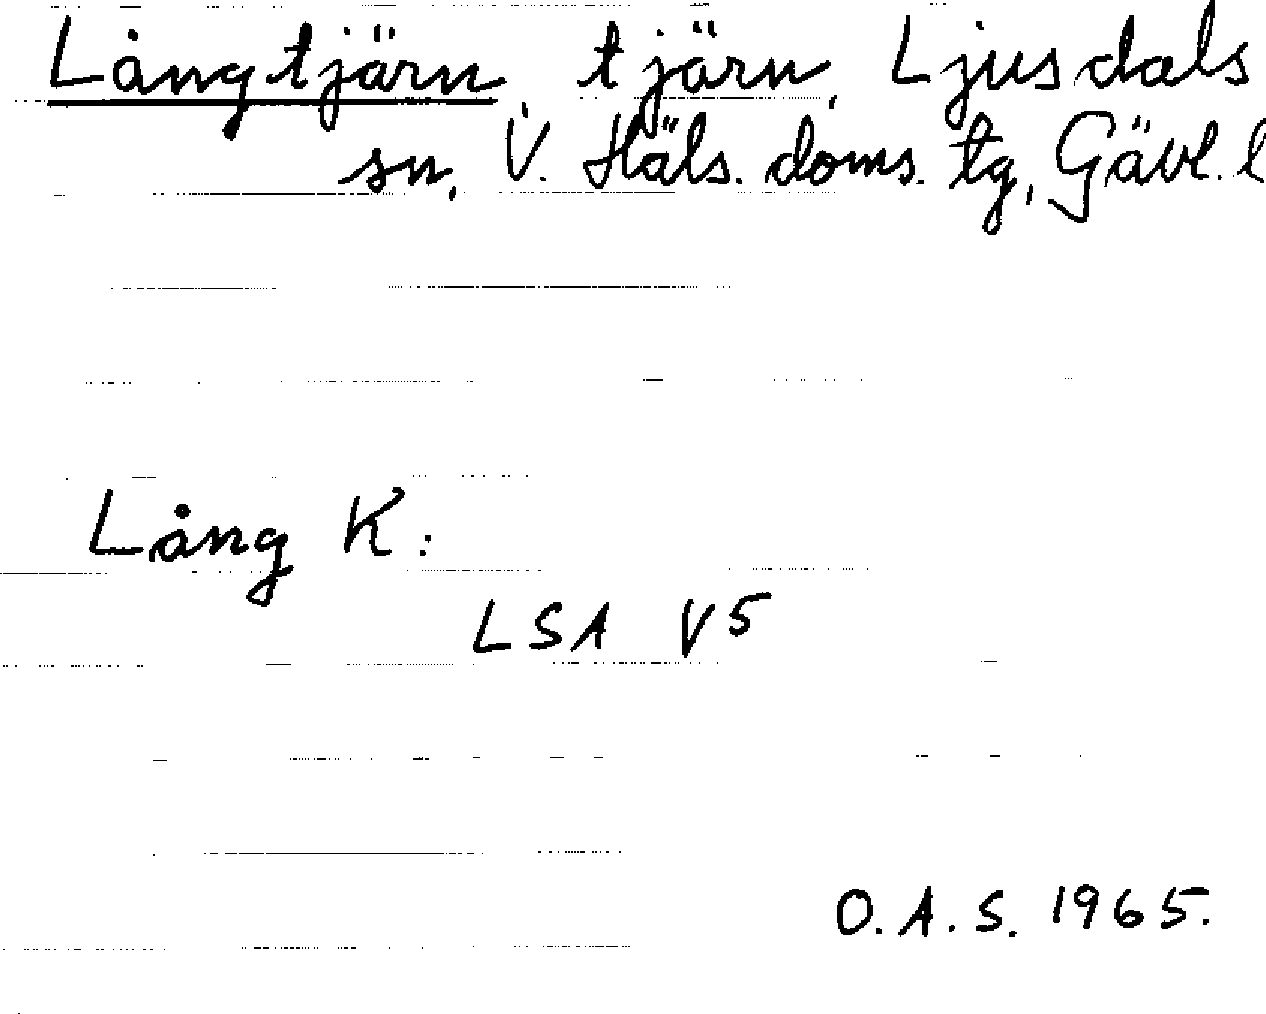 Långtjärn, tjärn, Ljusdals
sn, V. Häls. doms. tg, Gävl. l
Lång K:
LSA V5
O.A.S. 1965.